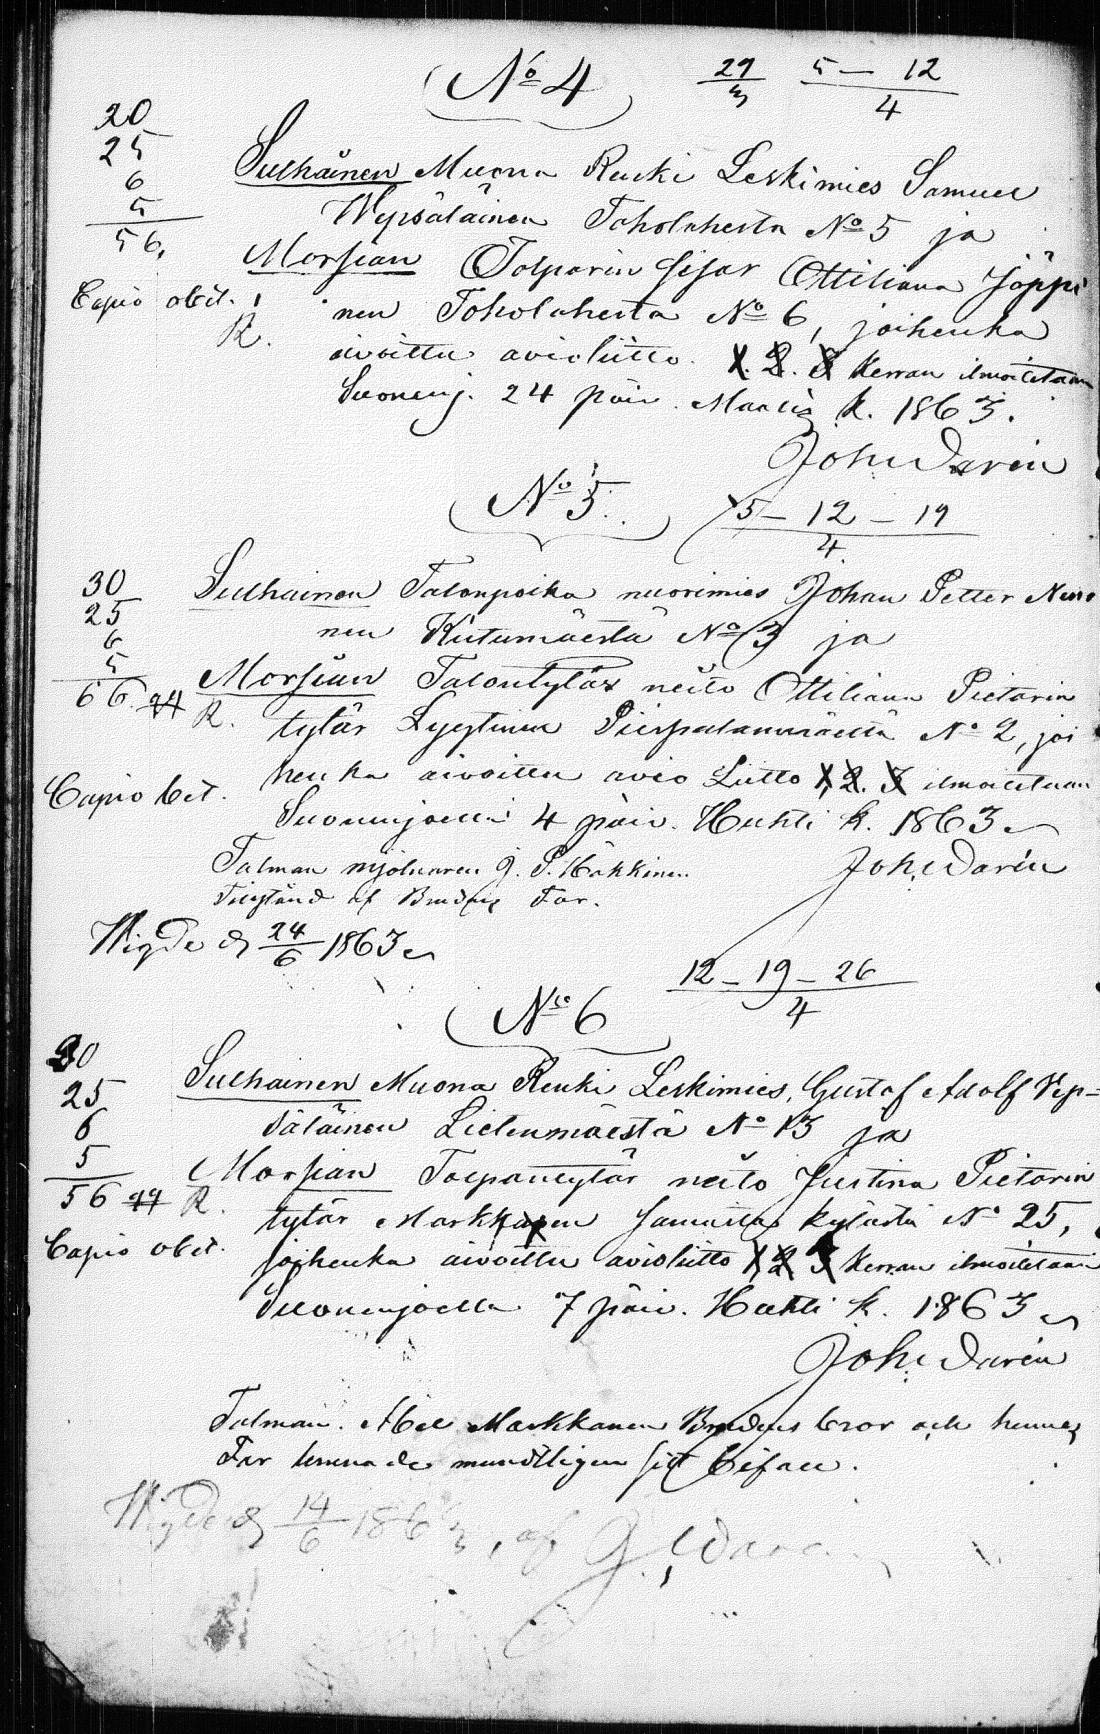 No 4 29/3 5 — 12/4
20
25
6
5
56.
Capio obit.
Sulhainen Muona Renki Leskimies Samuel
Wepsäläinen Toholahesta No 5 ja
Morsian Torparin sisar Ottiliana Jäppi
R. nen Toholahesta No 6, joihenka
aivoittu avioliitto. 1. 2. 3 Kerran ilmoitetaan
Suonenj. 24 päiv. Maalis k. 1863.
Joh. Darén
No 5. 5 — 12 — 19/4
30
25
6
5
66
Capio bet.
Sulhainen Talonpoika nuorimies Johan Petter
nen Kutumäestä No 3 ja
Morsian Talontytär neito Ottiliana Pietarin
R. tytär Lyytinen No 2, joi
henka aivoittu avio Liitto 1, 2. 3 ilmoitetaan
Suonenjoella 4 päiv. Huhti k. 1863
Joh. Darén
Talman mjölnaren J. P. Häkkinen
af Brudens Far.
Wigde d 24/6 1863
12 — 19 — 26/4
No 6
30
25
6
5
56
Capio obit.
Sulhainen Muona Renki Leskimies, Gustaf Adolf Vep=
säläinen Lietenmäestä No 13 ja
Morsian Torpantytär neito Justina Pietarin
R. tytär Markkanen kylästä No 25,
joihenka aivoittu avioliitto 1 2 3 Kerran ilmoitetaan
Suonenjoella 7 päiv. Huhti k. 1863
Joh. Darén
Talman. Abel Markkanen Brudens bror och hennes
Far lemnade mundtligen sitt bifall.
Wigde d 14/6 1863, af